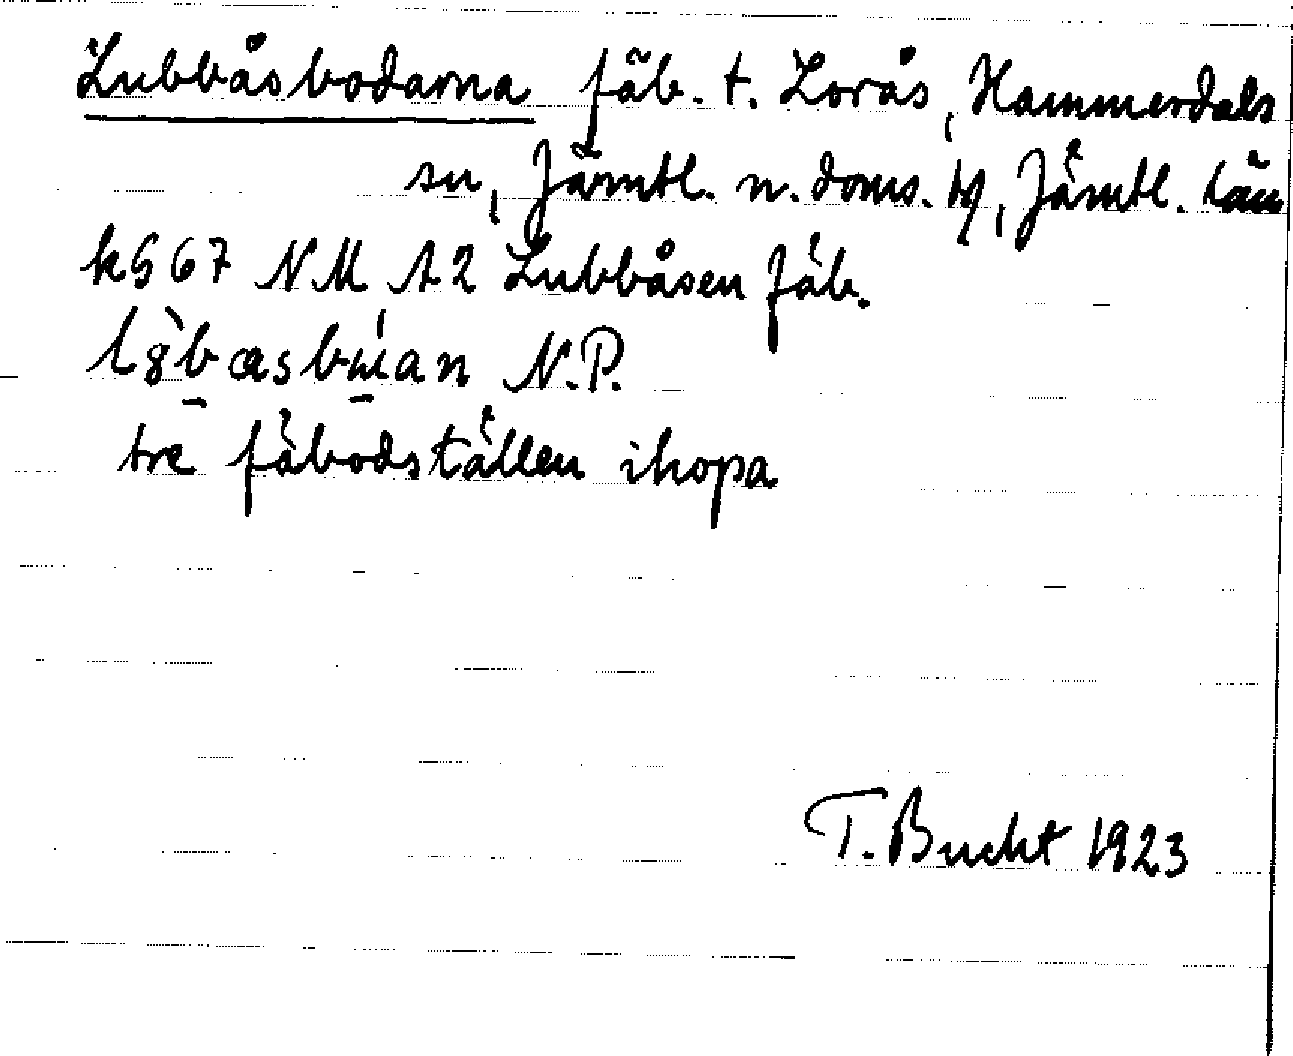 Lubbåsbodarna fäb. t. Lorås, Hammerdals
sn, Jämtl. n. doms. hd, Jämtl. län
kS 67 NM A2 Lubbåsen fäb.
N.P.
tre fäbodställen ihopa
T. Bucht 1923